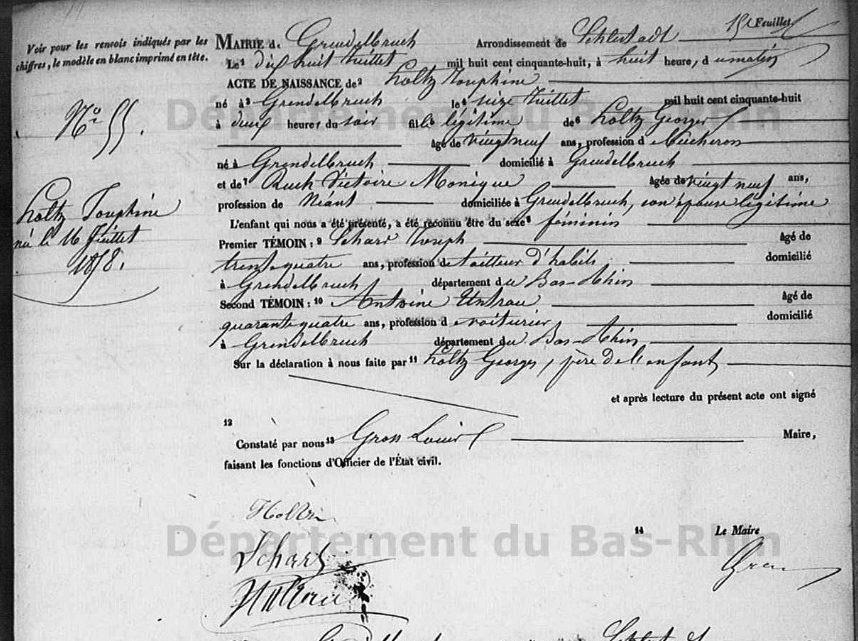 151 Feuillet
Voir pour les renvois indiqués par les
chiffres, le modèle en blanc imprimé en tête.
MAIRIE de Grendelbruch Arrondissement de Schlestadt
Le¹ dix huit Juillet mil huit cent cinquante-huit, à huit heure, du matin
ACTE DE NAISSANCE de² Holtz Josephine
N° 55.
né à³ Grendelbruch le⁴ seize Juillet mil huit cent cinquante-huit
à deux heure, du soir fille légitime de⁶ Holtz Georges
âgé de vingt neuf ans, profession de Bucheron
né à Grendelbruch domicilié à Grendelbruch
et de⁷ Ruch Victoire Monique âgée de vingt neuf ans,
profession de Néant domiciliée à Grendelbruch, son épouse légitime
Holtz Josephine
né le 16 Juillet
1858.
L'enfant qui nous a été présenté, a été reconnu être du sexe⁸ féminin
Premier TÉMOIN : ⁹ Schard Joseph âgé de
trente quatre ans, profession de tailleur d'habits domicilié
à Grendelbruch département du Bas-Rhin
Second TÉMOIN : ¹⁰ Antoine Untrau âgé de
quarante quatre ans, profession de voiturier domicilié
à Grendelbruch département du Bas-Rhin
Sur la déclaration à nous faite par¹¹ Holtz Georges, père de l'enfant
et après lecture du présent acte ont signé
12
Constaté par nous¹³ Gross Louis Maire,
faisant les fonctions d'Officier de l'État civil.
14 Le Maire
Schard
Département du Bas-Rhin
Département du Bas-Rhin